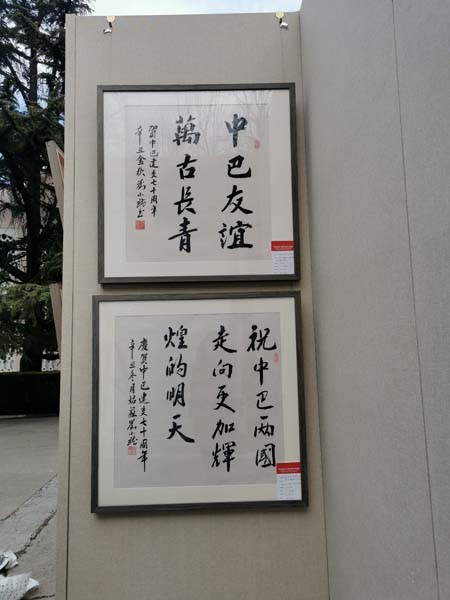 中巴友誼
萬古長青
賀中巴建交七十周年
辛丑金秋劉小
祝中巴兩國
走向更加輝
煌的明天
慶賀中巴建交七十周年
辛丑冬月姑蘇劉小